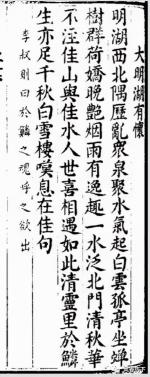 大明湖有懷
明湖西北隅歷亂衆泉聚水氣起白雲孤亭坐蟬
樹群荷嬌晚艷烟雨有逸趣一水泛北門清秋華
不注佳山與佳水人世喜相遇如此清靈里於鱗
生亦足千秋白雪樓嘆息在佳句
李叔則曰於鱗之魂呼之欲出